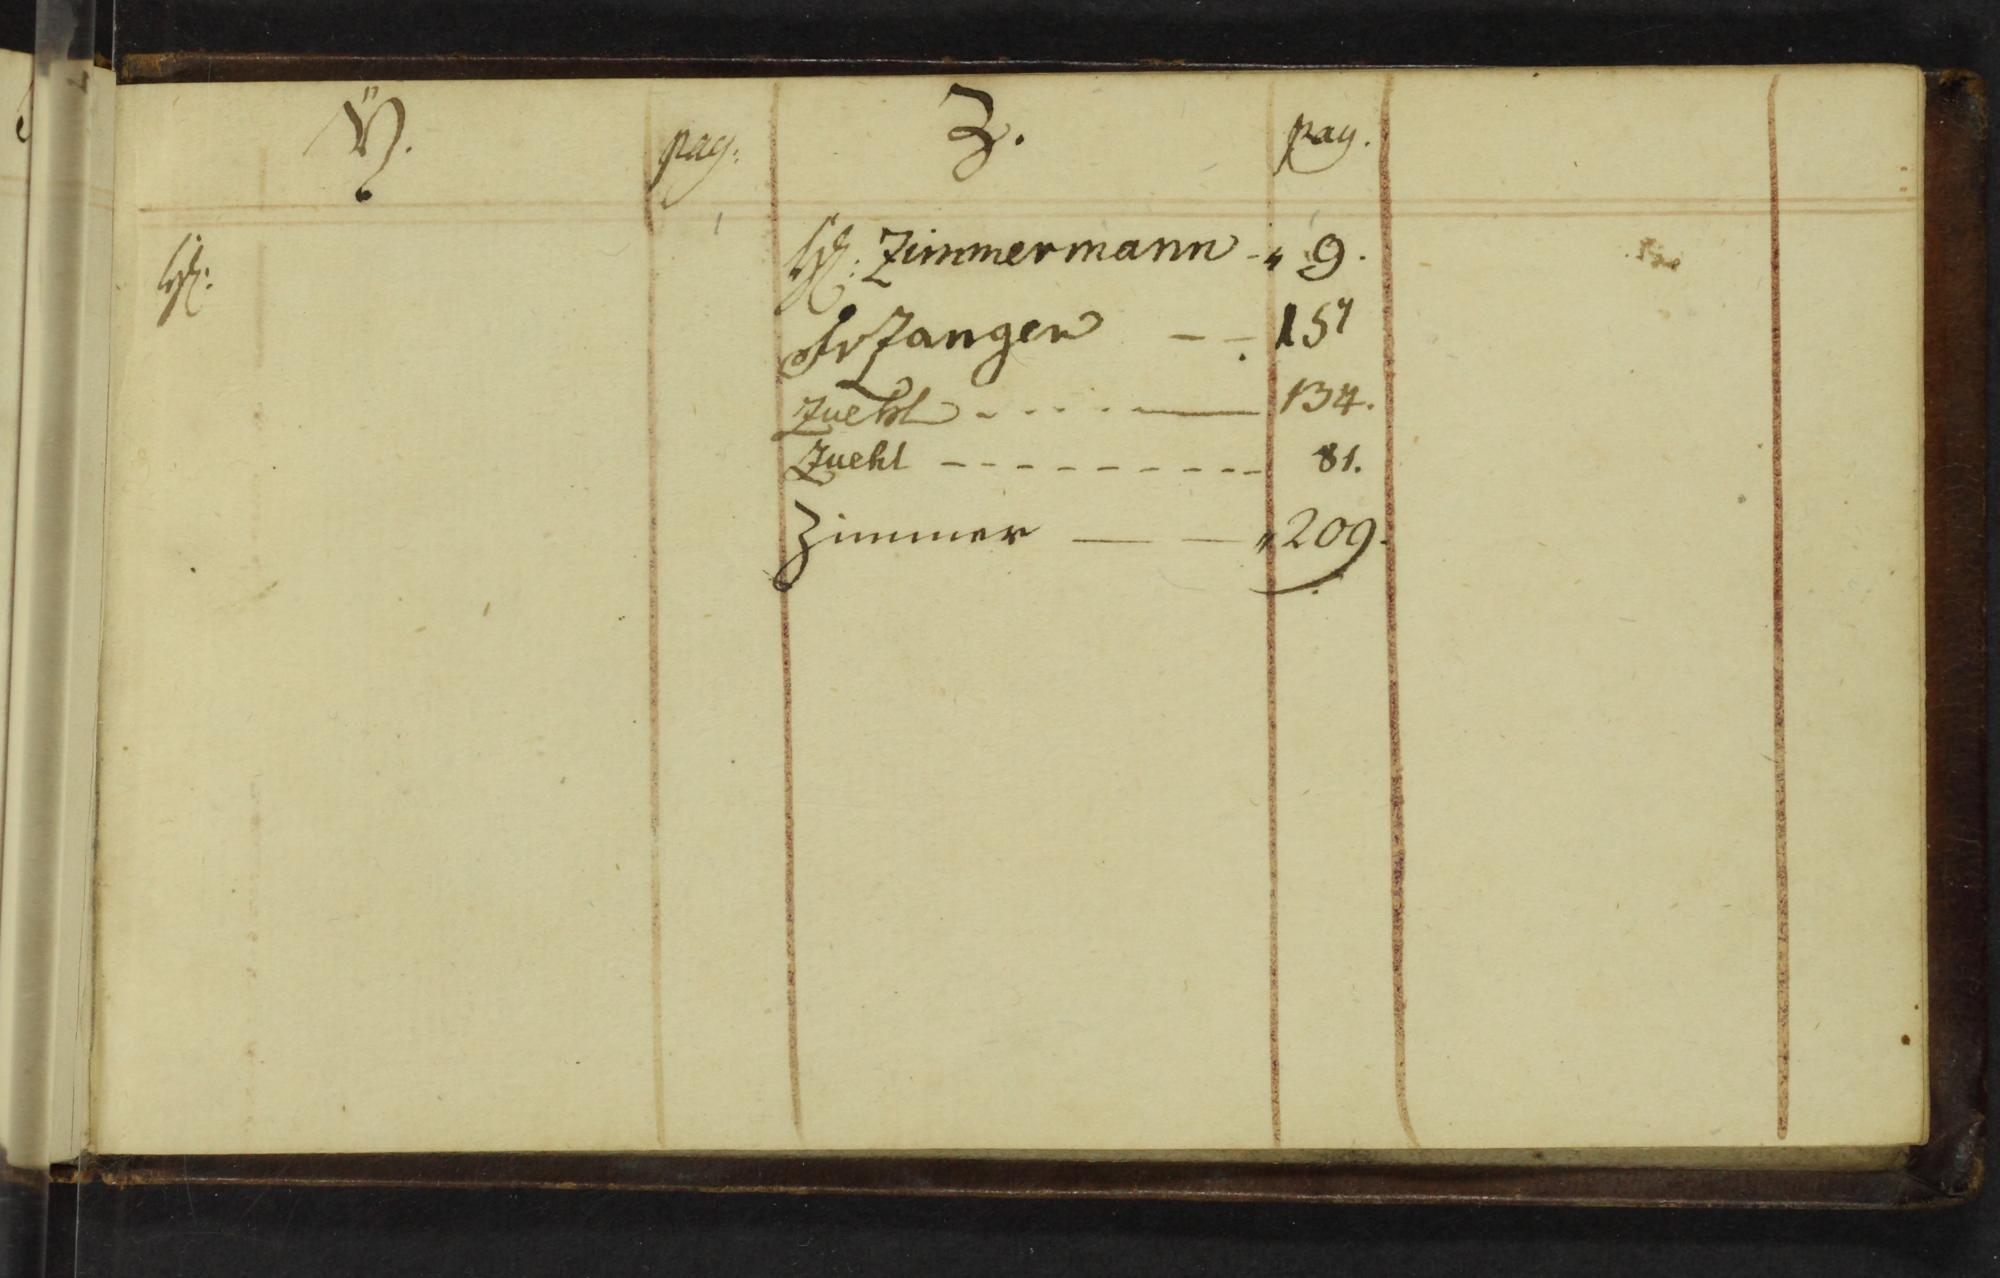 Ÿ. pag:
Z. pag.
H: 
H: Zimmermann - " 9.
Fr Zanger - - 157
Zuckl - - - - 134.
Zuckl - - - - - - - - - 81.
Zimmer — — " 209.